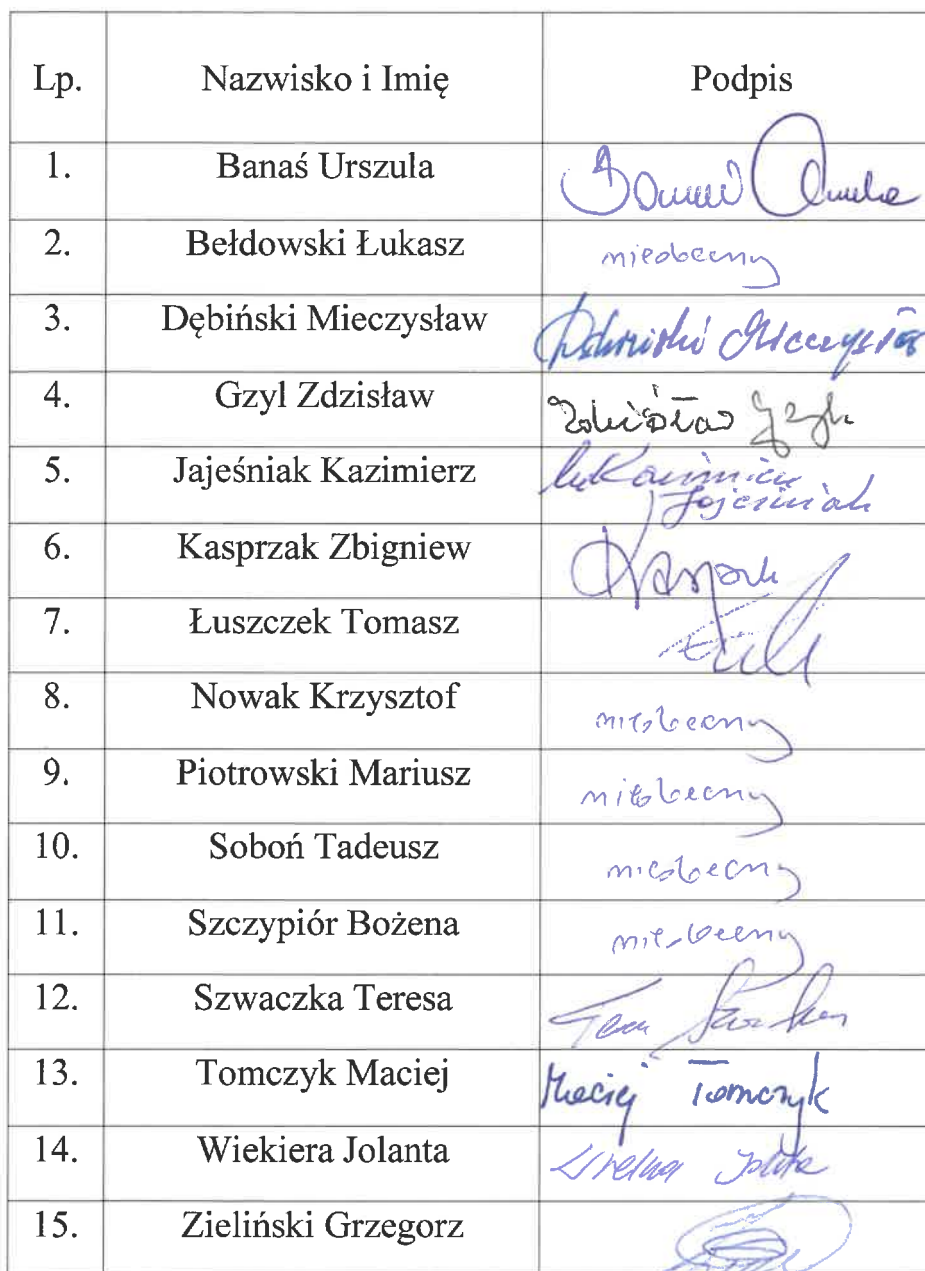 Lp. Nazwisko i Imię Podpis
1. Banaś Urszula
2. Bełdowski Łukasz nieobecny
3. Dębiński Mieczysław Dębiński Mieczysław
4. Gzyl Zdzisław Zdzisław Gzyl
5. Jajeśniak Kazimierz Kazimierz
Jajeśniak
6. Kasprzak Zbigniew
7. Łuszczek Tomasz
8. Nowak Krzysztof nieobecny
9. Piotrowski Mariusz nieobecny
10. Soboń Tadeusz nieobecny
11. Szczypiór Bożena nieobecny
12. Szwaczka Teresa
13. Tomczyk Maciej Maciej Tomczyk
14. Wiekiera Jolanta
15. Zieliński Grzegorz